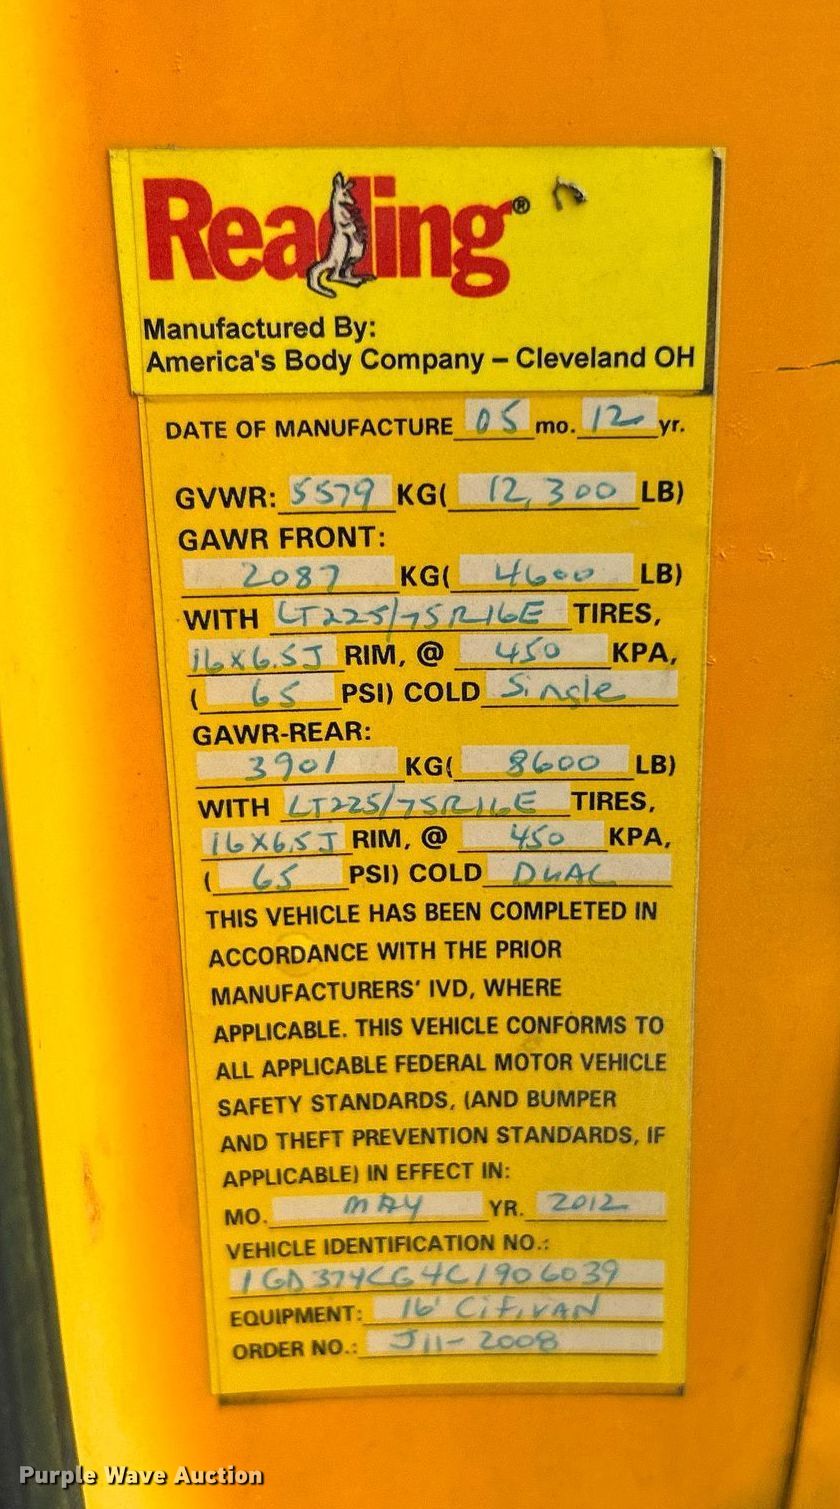 Reading®
Manufactured By:
America's Body Company – Cleveland OH
DATE OF MANUFACTURE 05 mo. 12 yr.
GVWR: 5579 KG( 12,300 LB)
GAWR FRONT:
2087 KG( 4600 LB)
WITH LT225/75R16E TIRES,
16x6.5J RIM, @ 450 KPA,
( 65 PSI) COLD Single
GAWR-REAR:
3901 KG( 8600 LB)
WITH LT225/75R16E TIRES,
16x6.5J RIM, @ 450 KPA,
( 65 PSI) COLD DUAL
THIS VEHICLE HAS BEEN COMPLETED IN
ACCORDANCE WITH THE PRIOR
MANUFACTURERS' IVD, WHERE
APPLICABLE. THIS VEHICLE CONFORMS TO
ALL APPLICABLE FEDERAL MOTOR VEHICLE
SAFETY STANDARDS, (AND BUMPER
AND THEFT PREVENTION STANDARDS, IF
APPLICABLE) IN EFFECT IN:
MO. MAY YR. 2012
VEHICLE IDENTIFICATION NO.:
1GD374CG4C1906039
EQUIPMENT: 16'
ORDER NO.: J11-2008
Purple Wave Auction